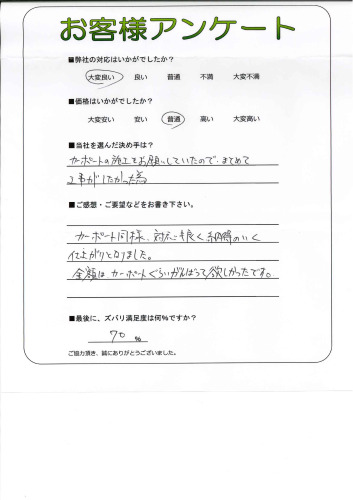 お客様アンケート
■弊社の対応はいかがでしたか?
大変良い 良い 普通 不満 大変不満
■価格はいかがでしたか?
大変安い 安い 普通 高い 大変高い
■当社を選んだ決め手は?
カーポートの施工もお願いしていたので、まとめて
工事がしたかった為
■ご感想・ご要望などをお書き下さい。
カーポート同様、対応も良く納得のいく
仕上がりとなりました。
金額は、カーポートぐらいがんばって欲しかったです。
■最後に、ズバリ満足度は何%ですか?
70 %
ご協力頂き、誠にありがとうございました。